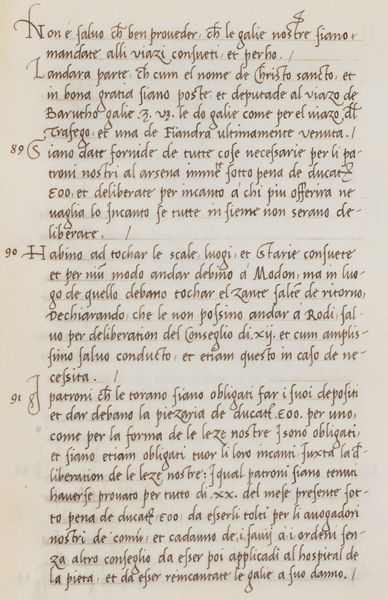 Non é salvo ch̄ ben proveder, ch̄ le galie nostre siano
mandate alli viazi consueti, et perho. /
Landara parte, ch̄ cum el nome de Christo sancto, et
in bona gratia siano poste et deputade al viazo de
Barutho galie .3. v3. le do galie come per el viazo d̄l
Trafego, et una de Fiandra ultimamente venuta. /
89 Siano date fornide de tutte cose necessarie per li pa-
troni nostri al arsena sotto pena de ducati
500, et deliberate per incanto á chi piu offerira ne
vaglia lo Incanto se tutte in sieme non serano de-
liberate. /
90 Habino ad tochar le scale, luogi, et Starie consuete
et per niū modo andar debino á Modon, ma in luo-
go de quello debano tochar el Zante salte de ritorno,
Dechiarando, che le non possino andar á Rodi, sal-
vo per deliberation del Conseglio di .xij. et cum amplis-
simo salvo conducto, et etiam questo in caso de ne-
cessita. /
91 I patroni ch̄ le torano siano obligati far i suoi depositi
et dar debano la piezaria de ducati 500. per uno,
come per la forma de le leze nostre Isono obligati,
et siano etiam obligati tuor li loro incanti Iuxta la d̄-
liberation de le leze nostre: Iqual patroni siano tenuti
haverse provato per tutto di .xx. del mese presente sot-
to pena de ducati 500 da esserli tolti per li avogadori
nostri de comū, et cadauno de .i. savij a i ordeni sen-
za altro conseglio da esser poi applicadi al hospital de
la pieta, et da esser reincantate le galie a suo danno. /